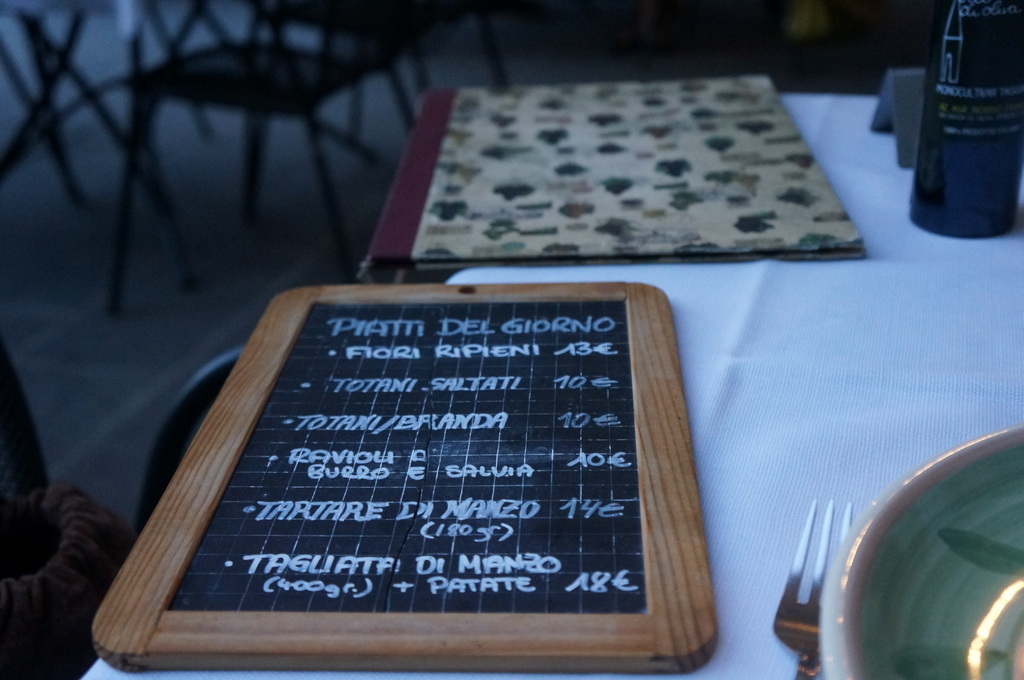 PIATTI DEL GIORNO
• FIORI RIPIENI 13€
• TOTANI SALTATI 10€
• TOTANI/BRANDA 10€
• RAVIOLI 10€
BURRO E SALVIA
• TARTARE DI MANZO 14€
(180gr)
• TAGLIATA DI MANZO
(400gr.) + PATATE 18€
di oliva
MONOCULTIVAR